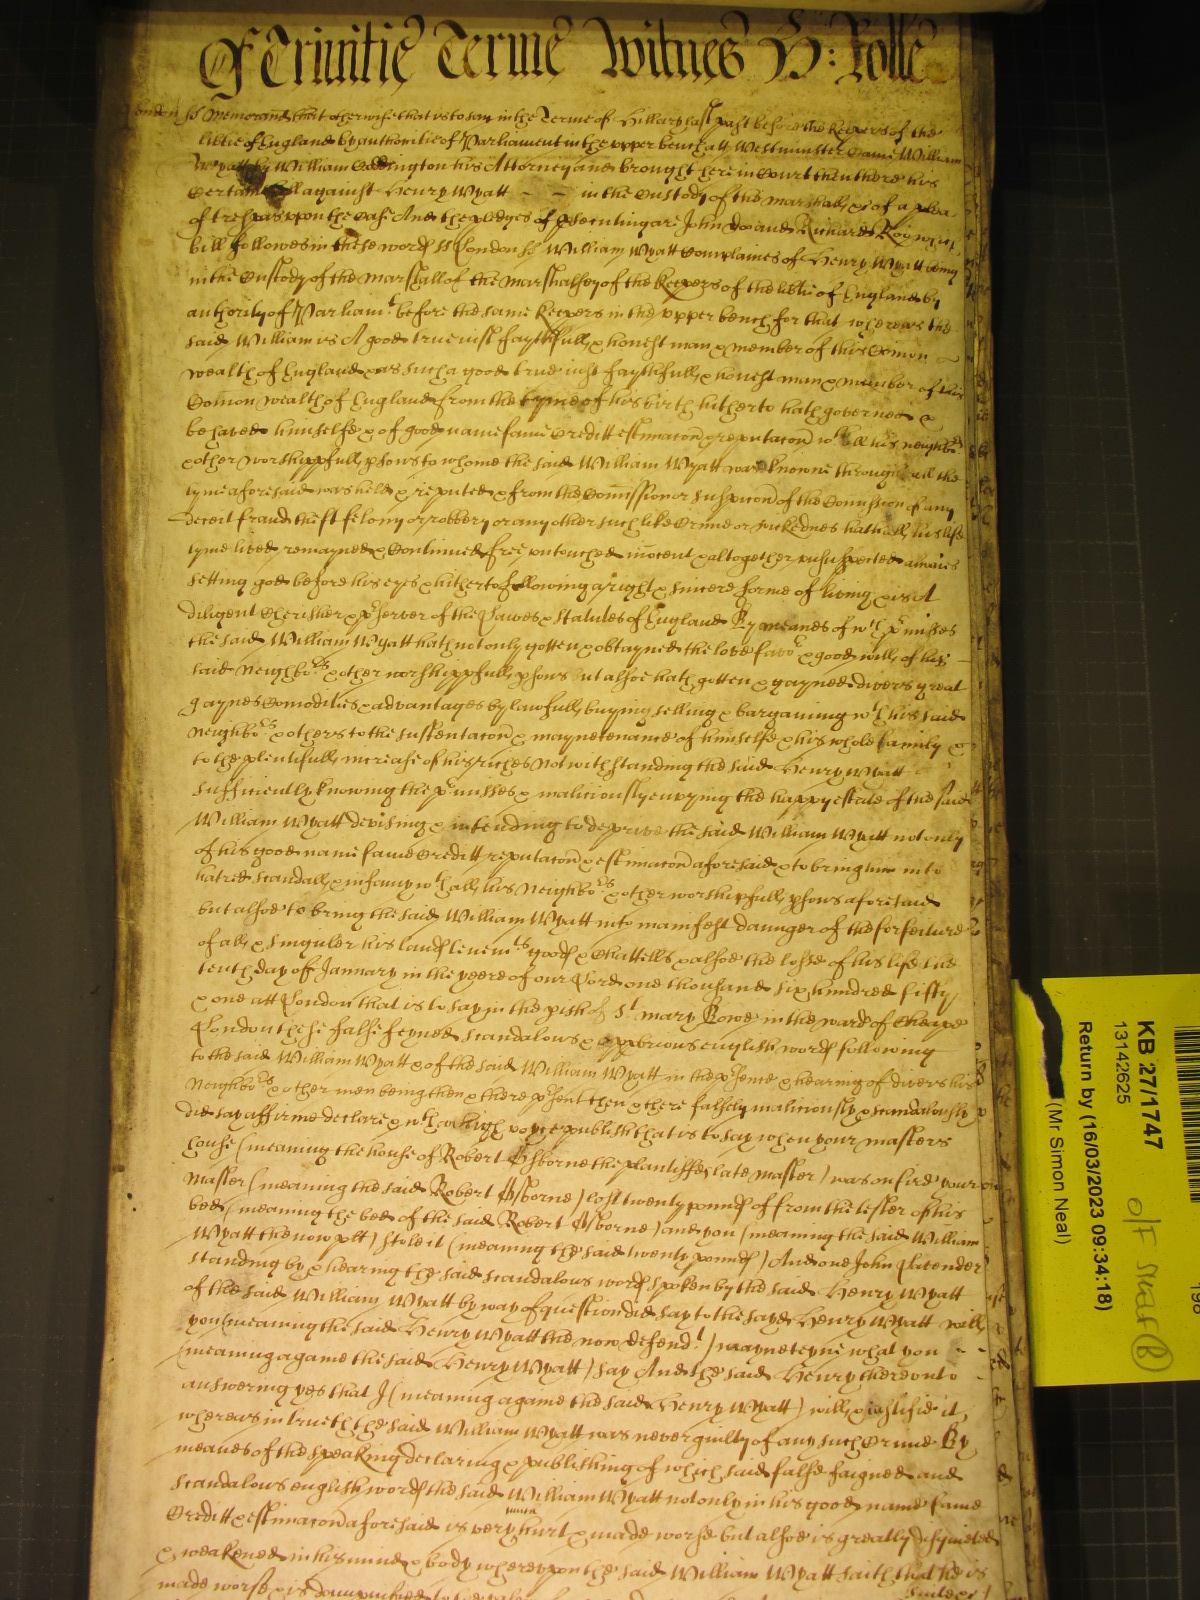 Of Trinitie Terme Witnes H: Rolle
London ss Memorand that otherwise that is to say in the Terme of Hillary last past before the Keepers of the
libtie of England by authoritie of Parliament in the upper bench att Westminster Came William
Wyatt by William Eddington his Attorney and brought here in Court then there his
Certaine bill against Henry Wyatt - - in the Custody of the marshall &c of a plea
of trespas upon the Case And the pledges of psecuting are John doo and Richard Roo which
bill followes in these word ss London ss William Wyatt Complaines of Henry Wyatt being
in the Custody of the Marshall of the Marshalsey of the Keepers of the libtie of England by
authority of Parliamt before the same Keepers in the upper bench for that whereas the
said William is A good true iust faythfull & honest man & member of this Comon
wealth of England & as such a good true iust faythfull & honest man & member of this
Comon wealth of England from the tyme of his birth hitherto hath governed &
behaved himselfe & of good name fame Creditt estimacon & reputacon wth all his neighbors
& other worshippfull psons to whome the said William Wyatt was knowne through all the
tyme aforesaid was held & reputed & from the Comission or suspicon of the Comission of any
deceit fraud theft felony or robbery or any other such like Crime or wickednes hath all his life
tyme lived remayned & Continued free untouched inocent & altogether unsuspected alwaies
setting god before his eyes & hitherto following a right & sincere forme of living & is A
diligent Cherisher & pserver of the Lawes & statutes of England By meanes of wch pmisses
the said William Wyatt hath not only gotten & obtayned the love favor & good will of his
said neighbors & other worshippfull psons but alsoe hath gotten & gayned divers great
gaynes Comodities & advantages by lawfull buying selling & bargaining wth his said
neighbors & others to the sustentacon & maynetenance of himselfe & his whole family &
to the plentifull increase of his riches Notwithstanding the said Henry Wyatt
sufficiently knowing the pmisses & maliciously envying the happy estate of the said
William Wyatt devising & intending to deprive the said William Wyatt not only
of his good name fame Creditt reputacon & estimacon aforesaid & to bring him into
hatred scandall & infamy wth all his Neighbors & other worshipfull psons aforesaid
but alsoe to bring the said William Wyatt into manifest daunger of the forfeiture
of all & singuler his land tenemts good & Chattells & alsoe the losse of his life the
tenth day of January in the yeere of our Lord one thousand six hundred fifty
& one att London that is to say in the pish of St mary Bowe in the ward of Cheape
London these false feyned scandalous & opprobrious english word following
to the said William Wyatt & of the said William Wyatt in the psence & hearing of divers his
Neighbors & other men being then & there psent then & there falsely maliciously & scandalously
did say affirme declare & wth an high voyce publish that is to say when your masters
house (meaning the house of Robert Osborne the plantiffes late master) was on fire your
Master (meaning the said Robert Osborne) lost twenty pound of from the tester of his
bed (meaning the bed of the said Robert Osborne) and you (meaning the said William
Wyatt the now plt) stole it (meaning the said twenty pound) And one John Lavender
standing by & hearing the said scandalous word spoken by the said Henry Wyatt
of the said William Wyatt by way of question did say to the sayd Henry Wyatt will
you (meaning the said Henry Wyatt the now defendt) mayneteyne what you - -
(meaning againe the said Henry Wyatt) say And the said Henry thereunto
answering yes that I (meaning againe the said Henry Wyatt) will & iustifie it
whereas in trueth the said William Wyatt was never guilty of any such Crime By
meanes of the speaking declaring & publishing of which said false faigned and
scandalous english word the said William Wyatt not only in his good name fame
Creditt & estimacon aforesaid is very much hurt & made worse but alsoe is greatly disquieted
& weakened in his mind & body whereupon the said William Wyatt saith that he is
made worse & is dampnified to the
KB 27/1747
13142625
Return by (16/03/2023 09:34:18)
(Mr Simon Neal)